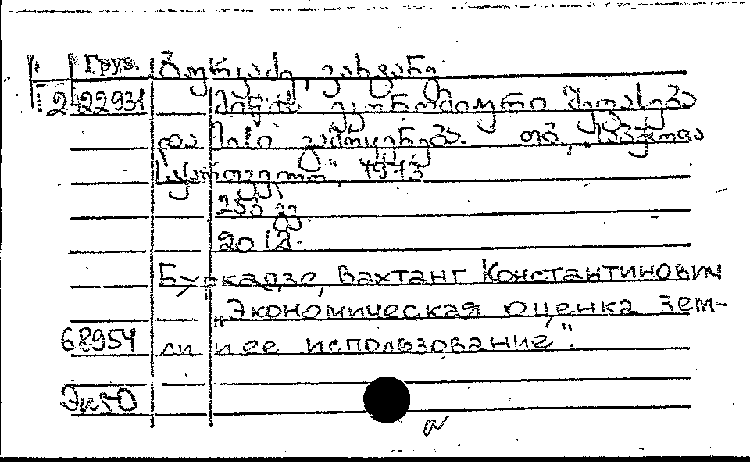 Груз. ბურკაძე, ვახტანგ
2 22931 მიწის ეკონომიური შეფასება
და მისი გამოყენება. თბ., "საბჭოთა
საქართველო", 1973
253 გვ.
Буркадзе, Вахтанг Константинович
"Экономическая оценка зем-
68954 ли и ее использование".